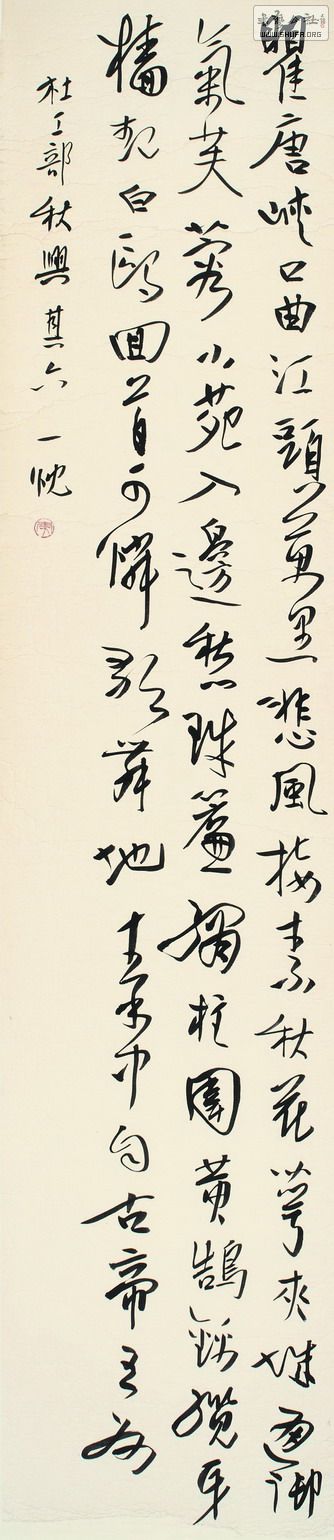 瞿唐峽口曲江頭萬里悲風接素秋花萼夾城通御
氣芙蓉小苑入邊愁珠簾繡柱圍黃鵠錦纜牙
檣起白鷗回首可憐歌舞地秦中自古帝王州
杜工部秋興其六 一忱
WWW.SHUFA.ORG